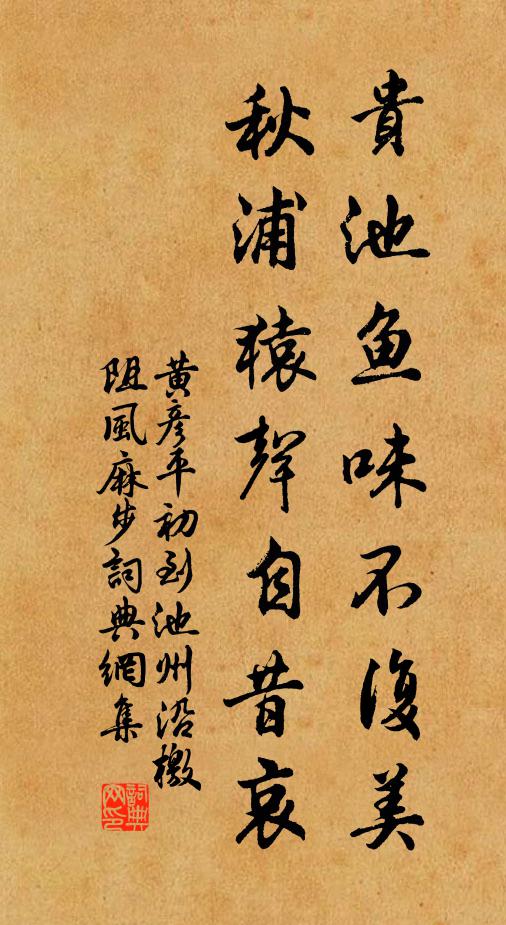 貴池魚味不復美
秋浦猿聲自昔哀
黃彥平初到池州沿檄
阻風麻步詞典網集
詞典網印